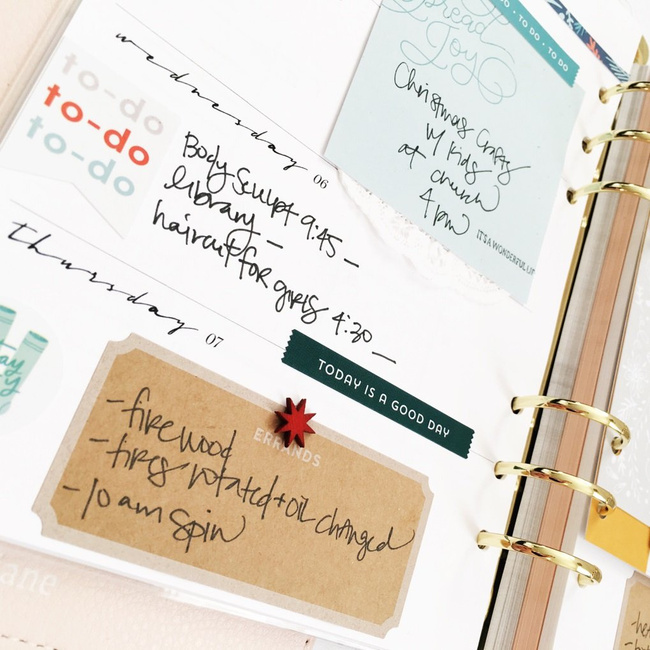 Spread
Joy
TO DO • TO DO
Christmas Crafts
w/ Kids
at church
4pm
IT'S A WONDERFUL
wednesday 06
to-do
to-do
to-do
Body Sculpt 9:45 —
library —
haircut for girls 4:30 —
thursday 07
TODAY IS A GOOD DAY
ERRANDS
-firewood
-tires rotated + oil changed
-10 am Spin